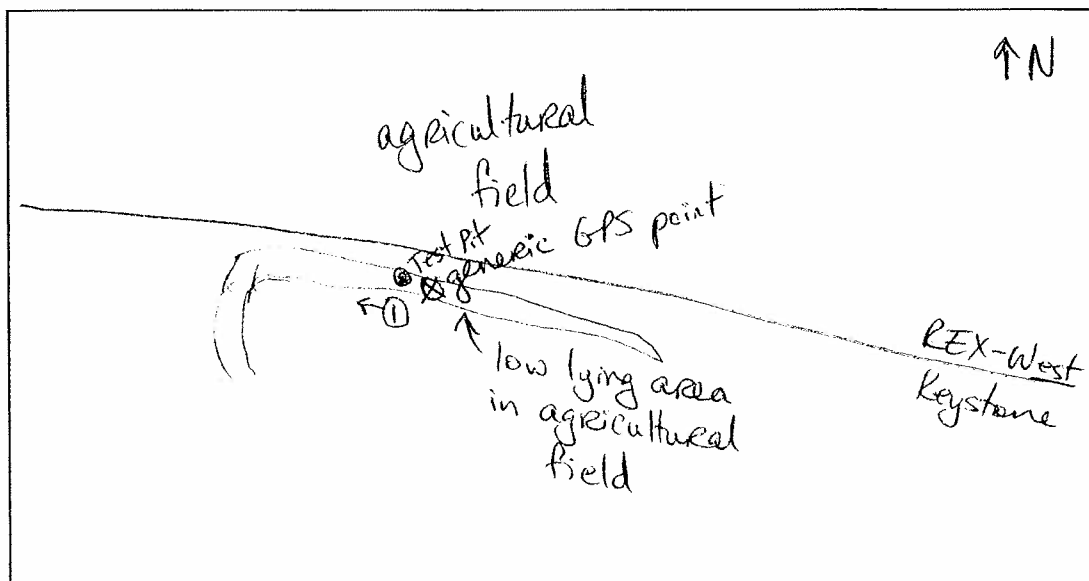 ↑N
agricultural
field
Test Pit
generic GPS point
←①
low lying area
in agricultural
field
REX-West
Keystone